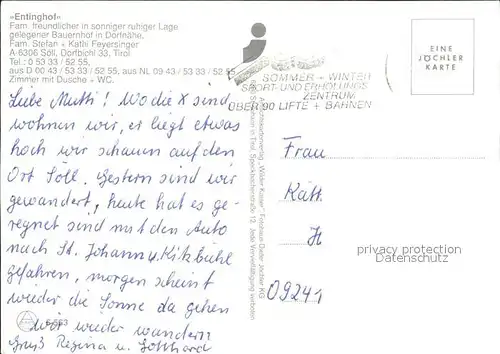 »Entinghof«
Fam. freundlicher in sonniger ruhiger Lage
gelegener Bauernhof in Dorfnähe.
Fam. Stefan + Kathi Feyersinger
A-6306 Söll, Dorfbichl 33, Tirol
Tel.: 0 53 33 / 52 55,
aus D 00 43 / 53 33 / 52 55, aus NL 09 43 / 53 33 / 52 55
Zimmer mit Dusche + WC.
SOMMER + WINTER
SPORT- UND ERHOLUNGS
ZENTRUM
ÜBER 90 LIFTE + BAHNEN
EINE
JÖCHLER
KARTE
Liebe Mutti! Wo die X sind
wohnen wir, er liegt etwas
hoch wir schauen auf den
Ort Söll. Gestern sind wir
gewandert, heute hat es ge-
regnet sind mit den Auto
nach St. Johann u. Kitzbühl
gefahren, morgen scheint
wieder die Sonne da gehen
wir wieder wandern
Gruß Regina u. Gotthard
Ansichtskartenverlag „Wilder Kaiser“ Fotohaus Dieter Jöchler KG
St. Johann in Tirol, Speckbacherstraße 12 Jede Vervielfältigung verboten
Frau
Käth
H
09241
privacy protection
Datenschutz